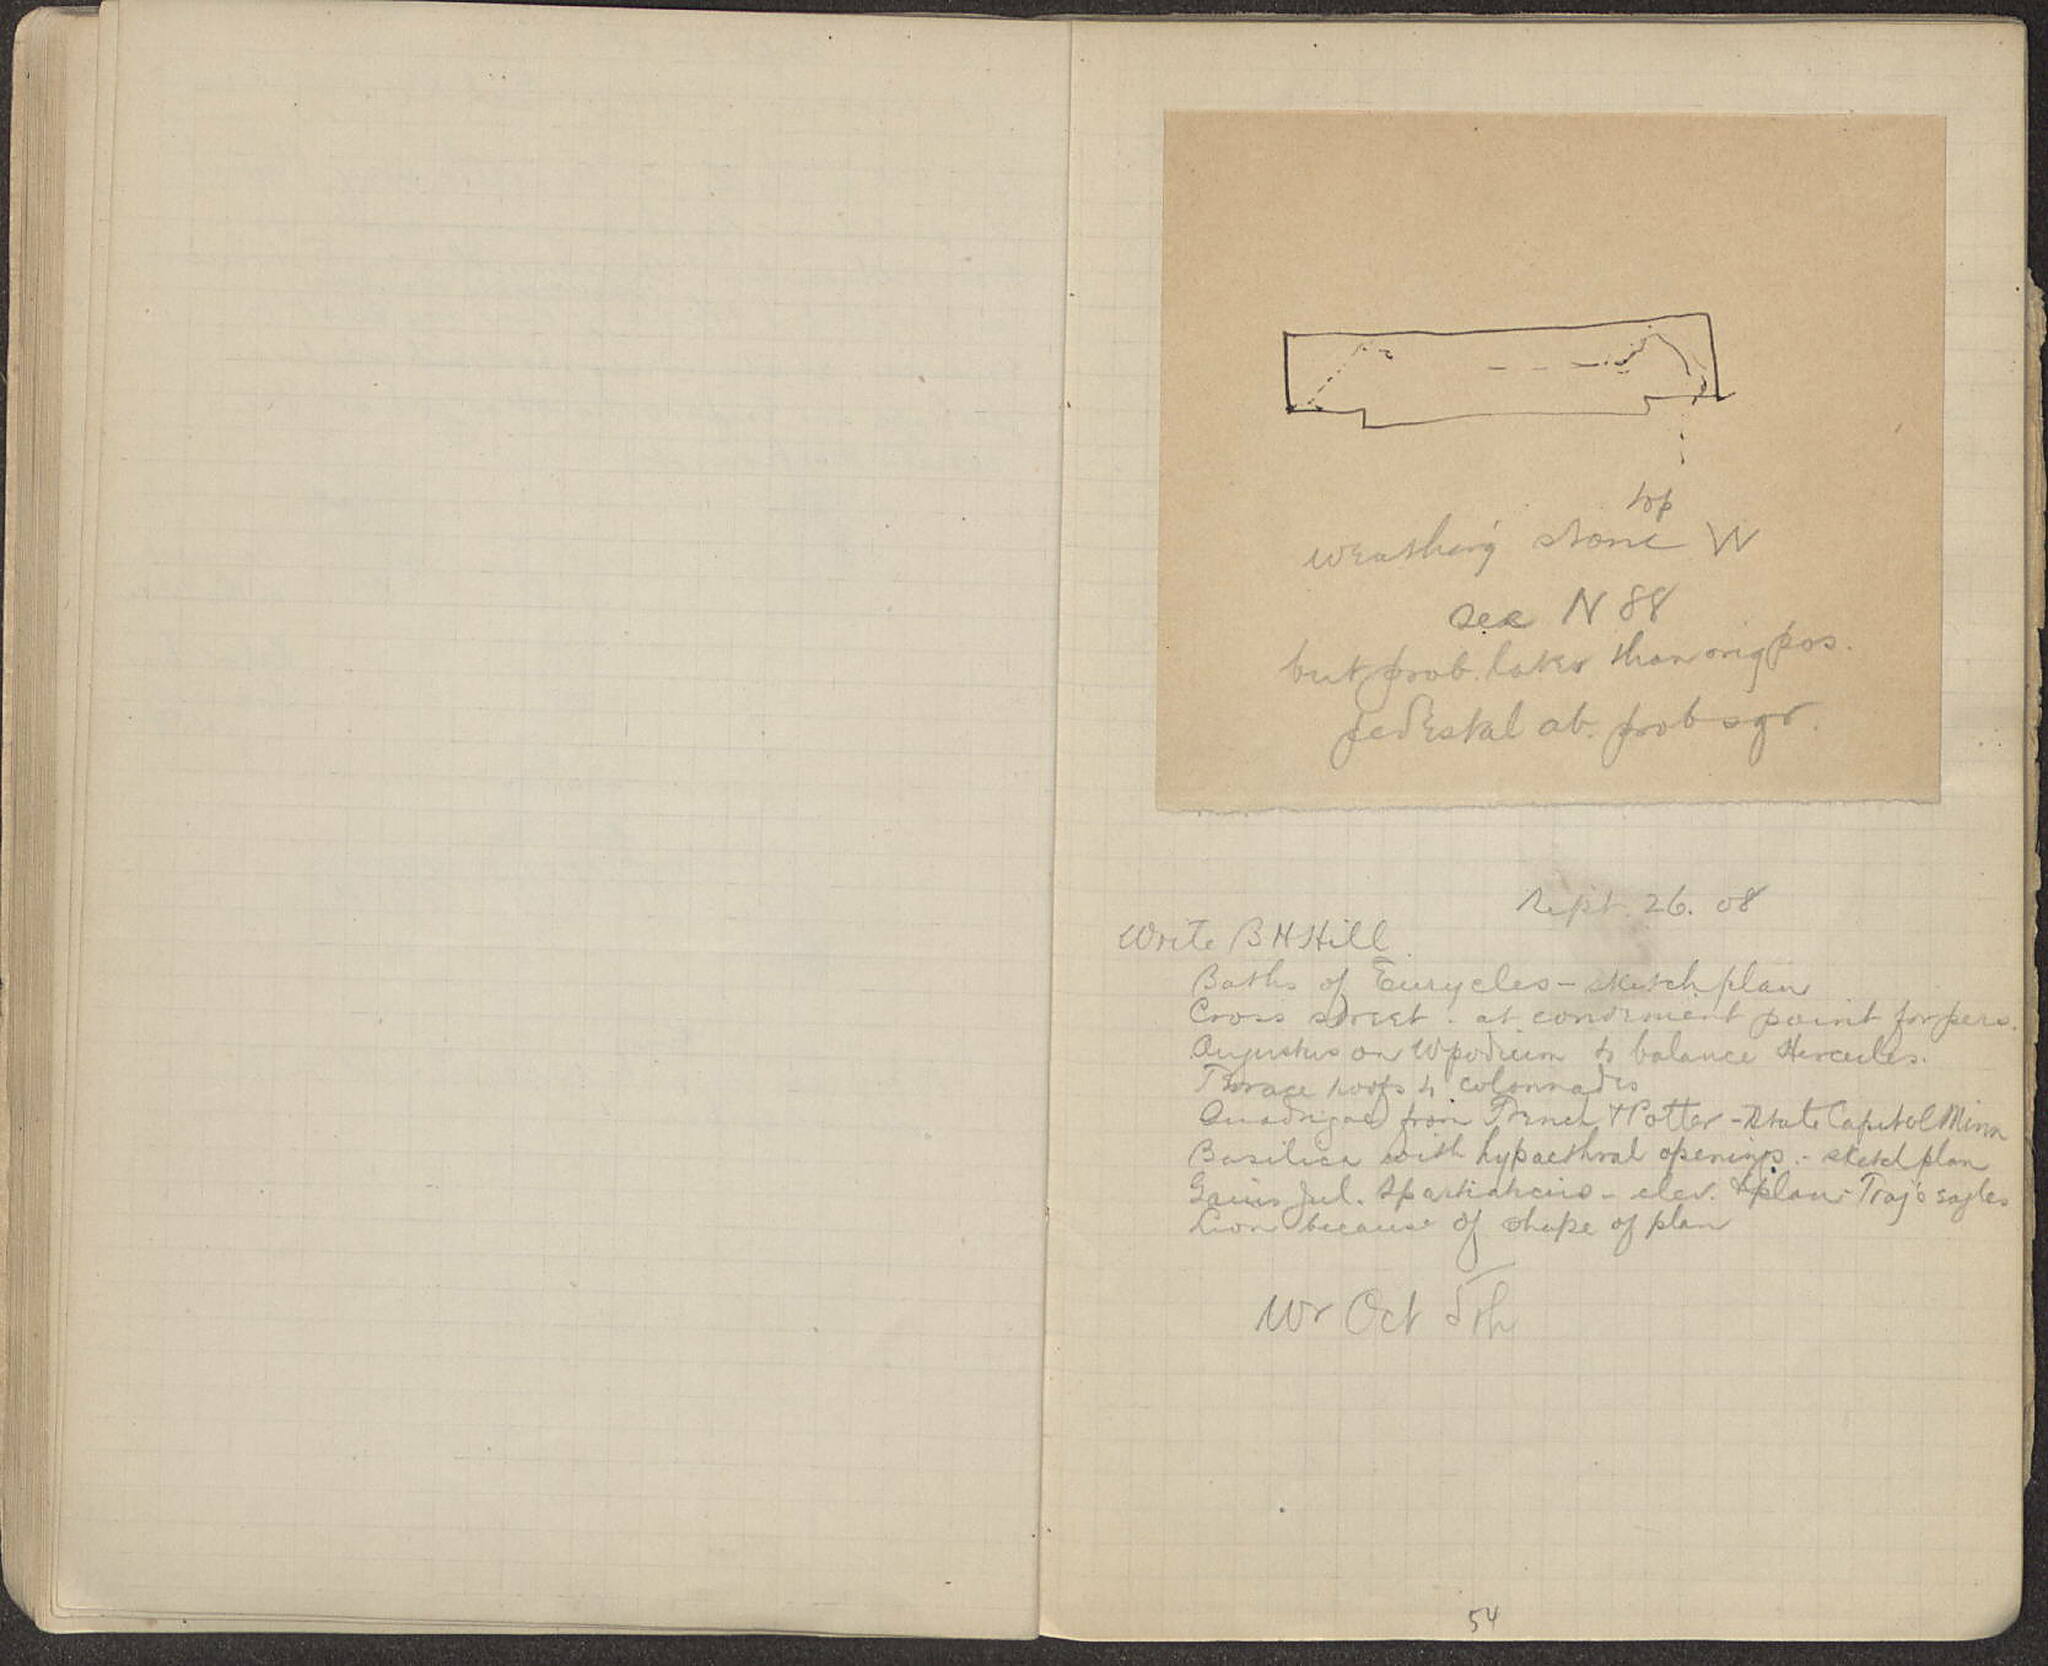 top
weathing stone W
see N 88
but prob. later than orig pos.
pedestal ab. prob sqr.
Sept. 26. 08
Write B H Hill
Baths of Eurycles - sketch plan
Cross street. at convenient point for pers.
Augustus on W podium to balance Hercules.
Terrace roofs to colonnades
Quadrigae from French & Potter - State Capitol Minn
Basilica with hypaethral openings. - sketch plan
Gaius Jul. Spartiaticus - elev. & plan - Traj's eagles
Lion because of shape of plan
Wr Oct 5th
54